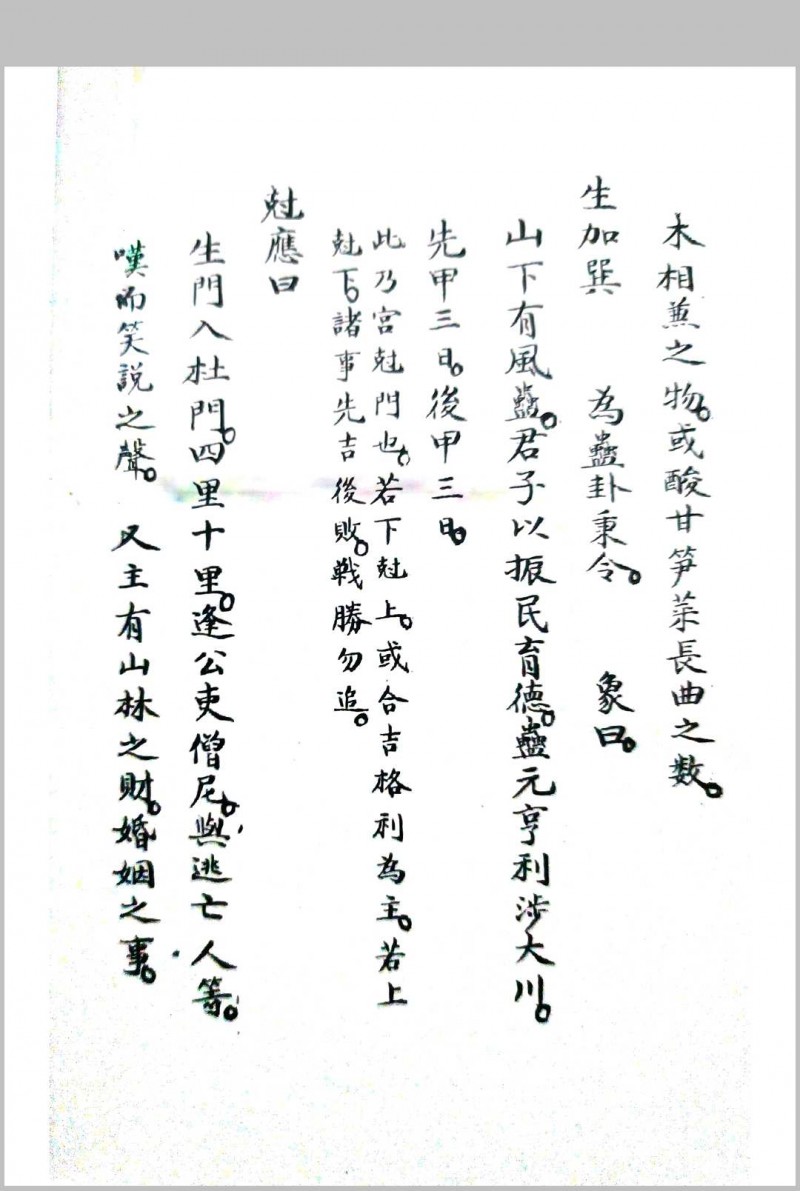 木相蒹之物。或酸甘笋菜長曲之数。
生加巽　為蠱卦秉令。　象曰。
山下有風蠱。君子以振民育德。蠱元亨利涉大川。
先甲三日。後甲三日。
此乃宮尅門也。若下尅上。或合吉格利為主。若上
尅下。諸事先吉後敗。戦勝勿追。
尅應曰
生門入杜門。四里十里。逢公吏僧尼。與逃亡人等。
嘆而笑說之聲。又主有山林之財。婚姻之事。